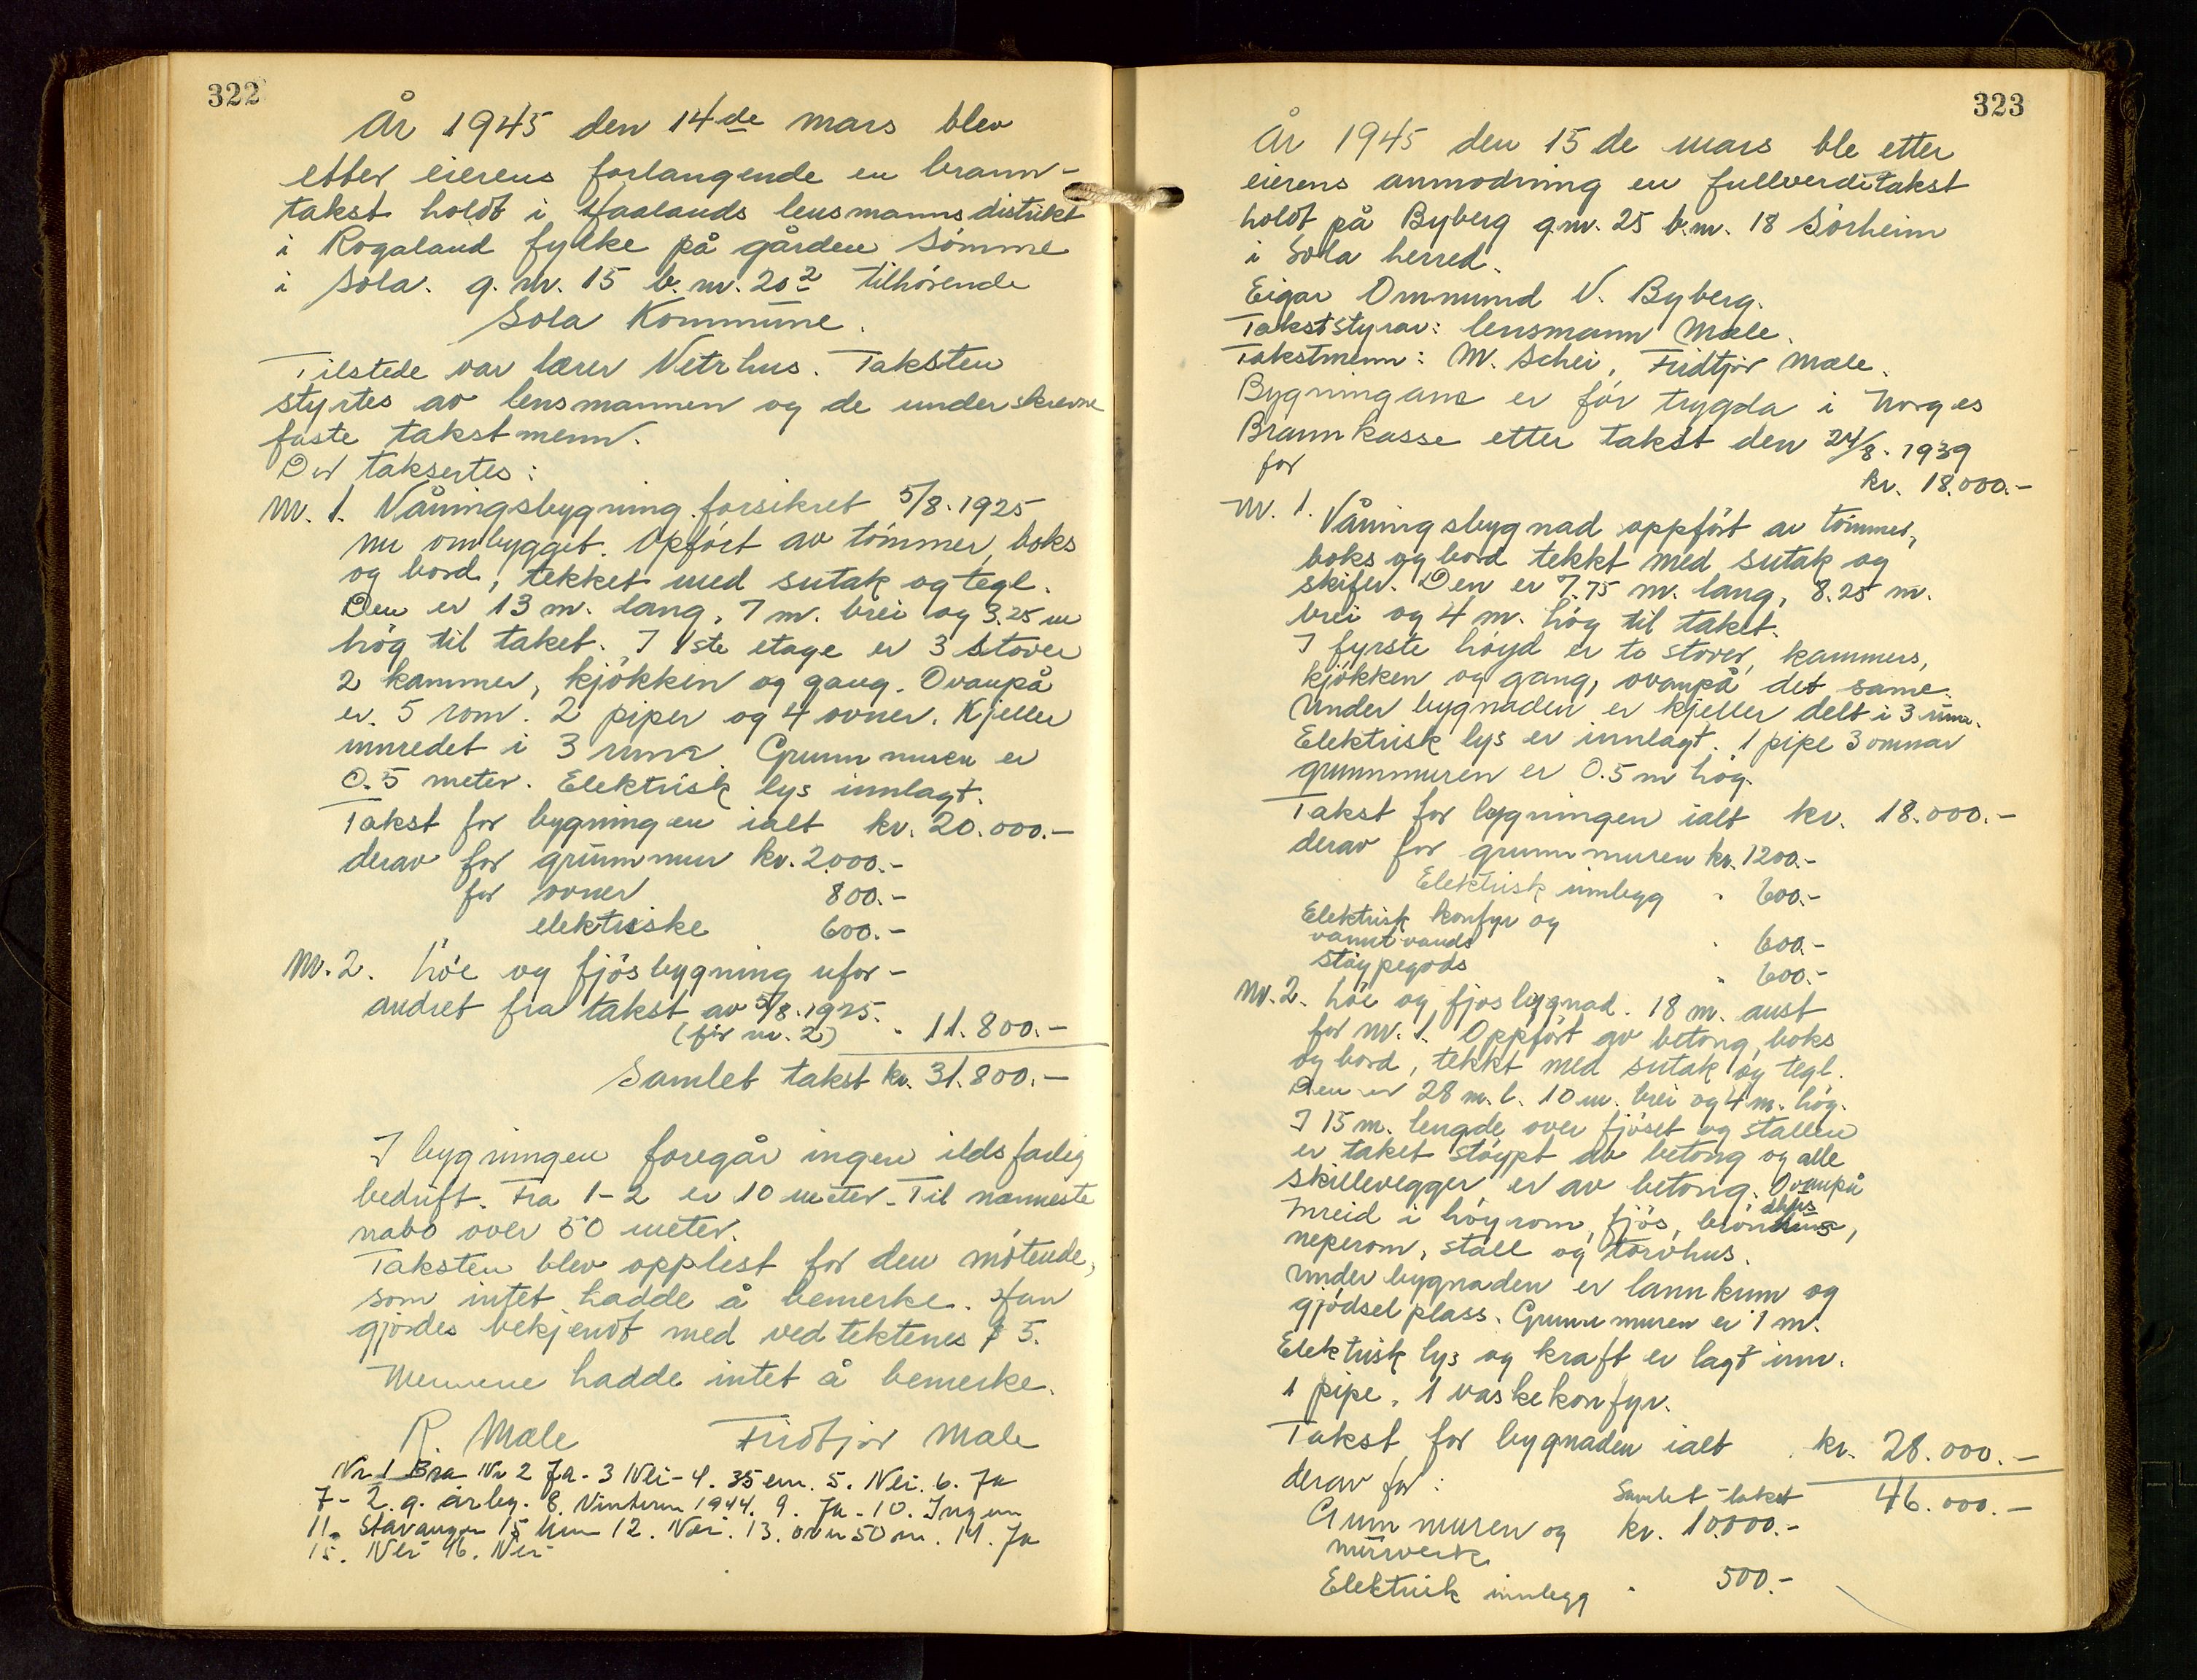 322
År 1945 den 14de mars blev
etter eierens forlangende en brann-
takst holdt i Haalands lensmannsdistrikt
i Rogaland fylke på gården Sømme
i Sola. g.nr. 15 b.nr. 20² tilhørende
Sola Kommune.
Tilstede var lærer Vetrhus. Taksten
styrtes av lensmannen og de underskrevne
faste takstmenn.
Der taksertes:
Nr. 1. Våningsbygning forsikret 5/8. 1925
nu ombygget. Opført av tømmer, boks
og bord, tekket med sutak og tegl.
Den er 13 m. lang, 7 m. brei og 3.25 m
høg til taket. I 1ste etage er 3 stover
2 kammer, kjøkken og gang. Ovanpå
er 5 rom. 2 piper og 4 ovner. Kjeller
innredet i 3 rum. Grunnmuren er
0.5 meter. Elektrisk lys innlagt.
Takst for bygningen ialt kr. 20.000.-
derav for grunnmur kr. 2000.-
for ovner 800.-
elektriske 600.-
Nr. 2. høe og fjøsbygning ufor-
andret fra takst av 5/8. 1925.
(før nr. 2) " 11.800.-
Samlet takst kr. 31.800.-
I bygningen foregår ingen ildsfarlig
bedrift. Fra 1-2 er 10 meter. Til nærmeste
nabo over 50 meter.
Taksten blev opplest for den møtende,
som intet hadde å bemerke. Han
gjordes bekjendt med vedtektenes § 5.
Mennene hadde intet å bemerke.
R. Mæle Fridtjov Mæle
Nr 1 Bra Nr 2 Ja - 3 Nei - 4. 35 cm. 5. Nei. 6. Ja
7 - 2. g. årleg. 8. Vinteren 1944. 9. Ja - 10. Ingen
11. Stavanger 15 km 12. Nei. 13. over 50 m. 14. Ja
15. Nei 16. Nei
323
År 1945 den 15de mars ble etter
eierens anmodning en fullverditakst
holdt på Byberg g.nr. 25 b.nr. 18 Sørheim
i Sola herred.
Eigar Ommund V. Byberg.
Takststyrar: lensmann Mæle.
Takstmenn: M. Schei, Fridtjov Mæle.
Bygningane er før trygda i Norges
Brannkasse etter takst den 24/8. 1939
for
kr. 18.000.-
Nr. 1. Våningsbygnad oppført av tømmer,
boks og bord tekkt med sutak og
skifer. Den er 7.75 m. lang, 8.25 m.
brei og 4 m. høg til taket.
I fyrste høyd er to stover, kammers,
kjøkken og gang, ovanpå det same.
Under bygnaden er kjeller delt i 3 rum.
Elektrisk lys er innlagt. 1 pipe 3 omnar
grunnmuren er 0.5 m høg.
Takst for bygningen ialt kr. 18.000.-
derav for grunnmuren kr. 1200.-
Elektrisk innlegg " 600.-
Elektrisk konfyr og
" 600.-
støypegods " 600.-
Nr. 2. høe og fjosbygnad. 18 m. aust
for nr. 1. Oppført av betong, boks
og bord, tekkt med sutak og tegl.
Den er 28 m. l. 10 m. brei og 4 m. høg.
I 15 m. lengde over fjøset og stallen
er taket støypt av betong og alle
skillevegger er av betong. Ovanpå
Inreid i høyrom, fjøs, brøndhus,
neperom, stall og torvhus.
Under bygnaden er lannkum og
gjødselplass. Grunnmuren er 1 m.
Elektrisk lys og kraft er lagt inn.
1 pipe, 1 vaskekonfyr.
Takst for bygnaden ialt kr. 28.000.-
derav for: Samlet takst 46.000.-
Grunnmuren og kr. 10.000.-
murverk
Elektrisk innlegg " 500.-